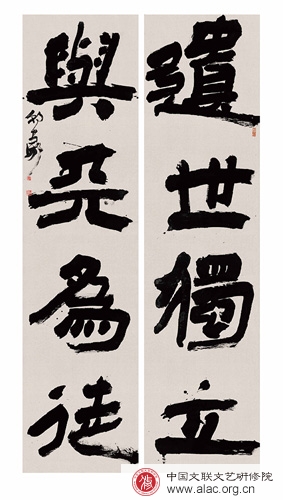 遺世獨立
與天為徒
中国文联文艺研修院
www.alac.org.cn